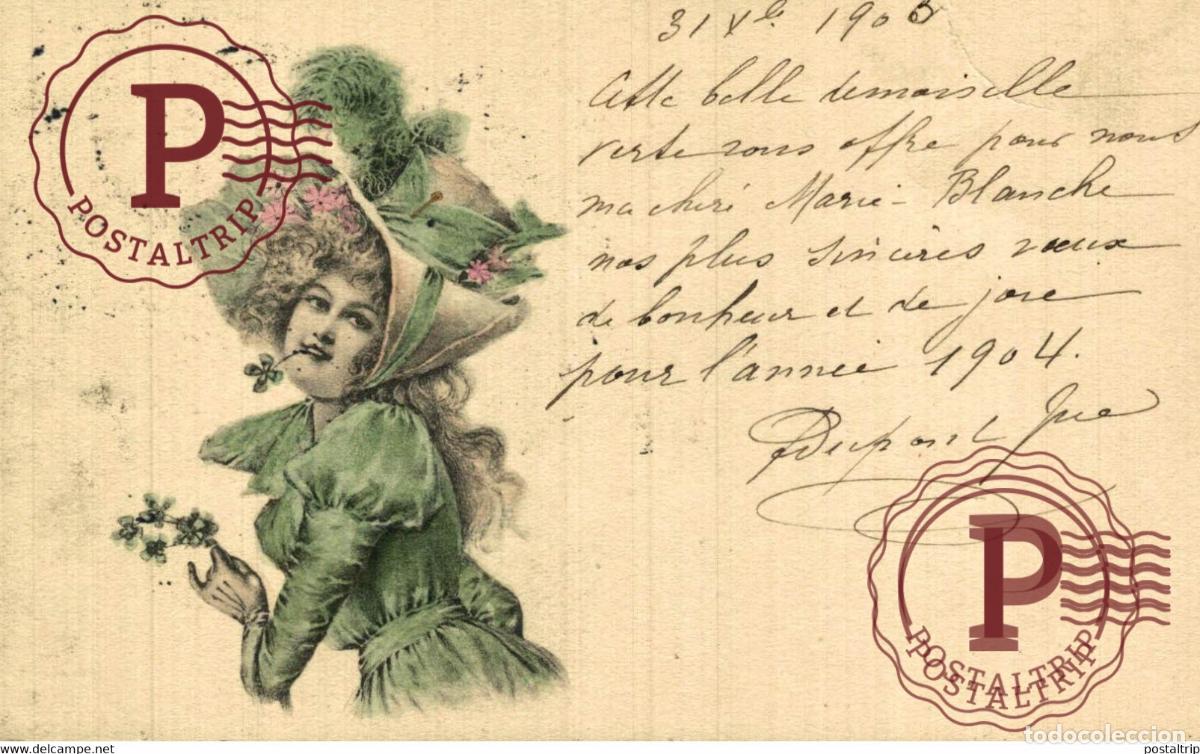 31 Xbre 1903
Cette belle demoiselle
verte vous offre pour nous
ma chère Marie-Blanche
nos plus sincères vœux
de bonheur et de joie
pour l'année 1904.
Dupont
P
POSTALTRIP
P
POSTALTRIP
todocoleccion
www.todocoleccion.net
postaltrip